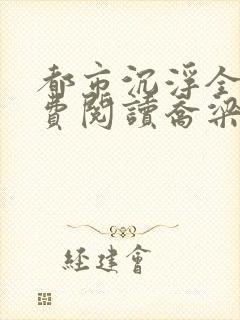 都市沉浮全
費閱讀喬梁
經建會